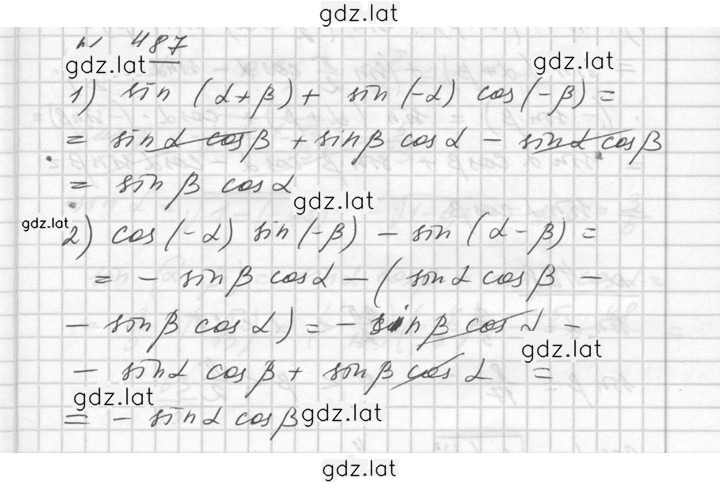 gdz.lat
№ 487
gdz.lat gdz.lat
1) sin (α+β) + sin(-α) cos(-β) =
= sinα cosβ + sinβ cosα - sinα cosβ
= sinβ cosα
gdz.lat
gdz.lat
2) cos(-α) sin(-β) - sin(α-β) =
= - sinβ cosα - (sinα cosβ -
- sinβ cosα) = - sinβ cosα -
gdz.lat
- sinα cosβ + sinβ cosα =
gdz.lat
= - sinα cosβ gdz.lat
gdz.lat